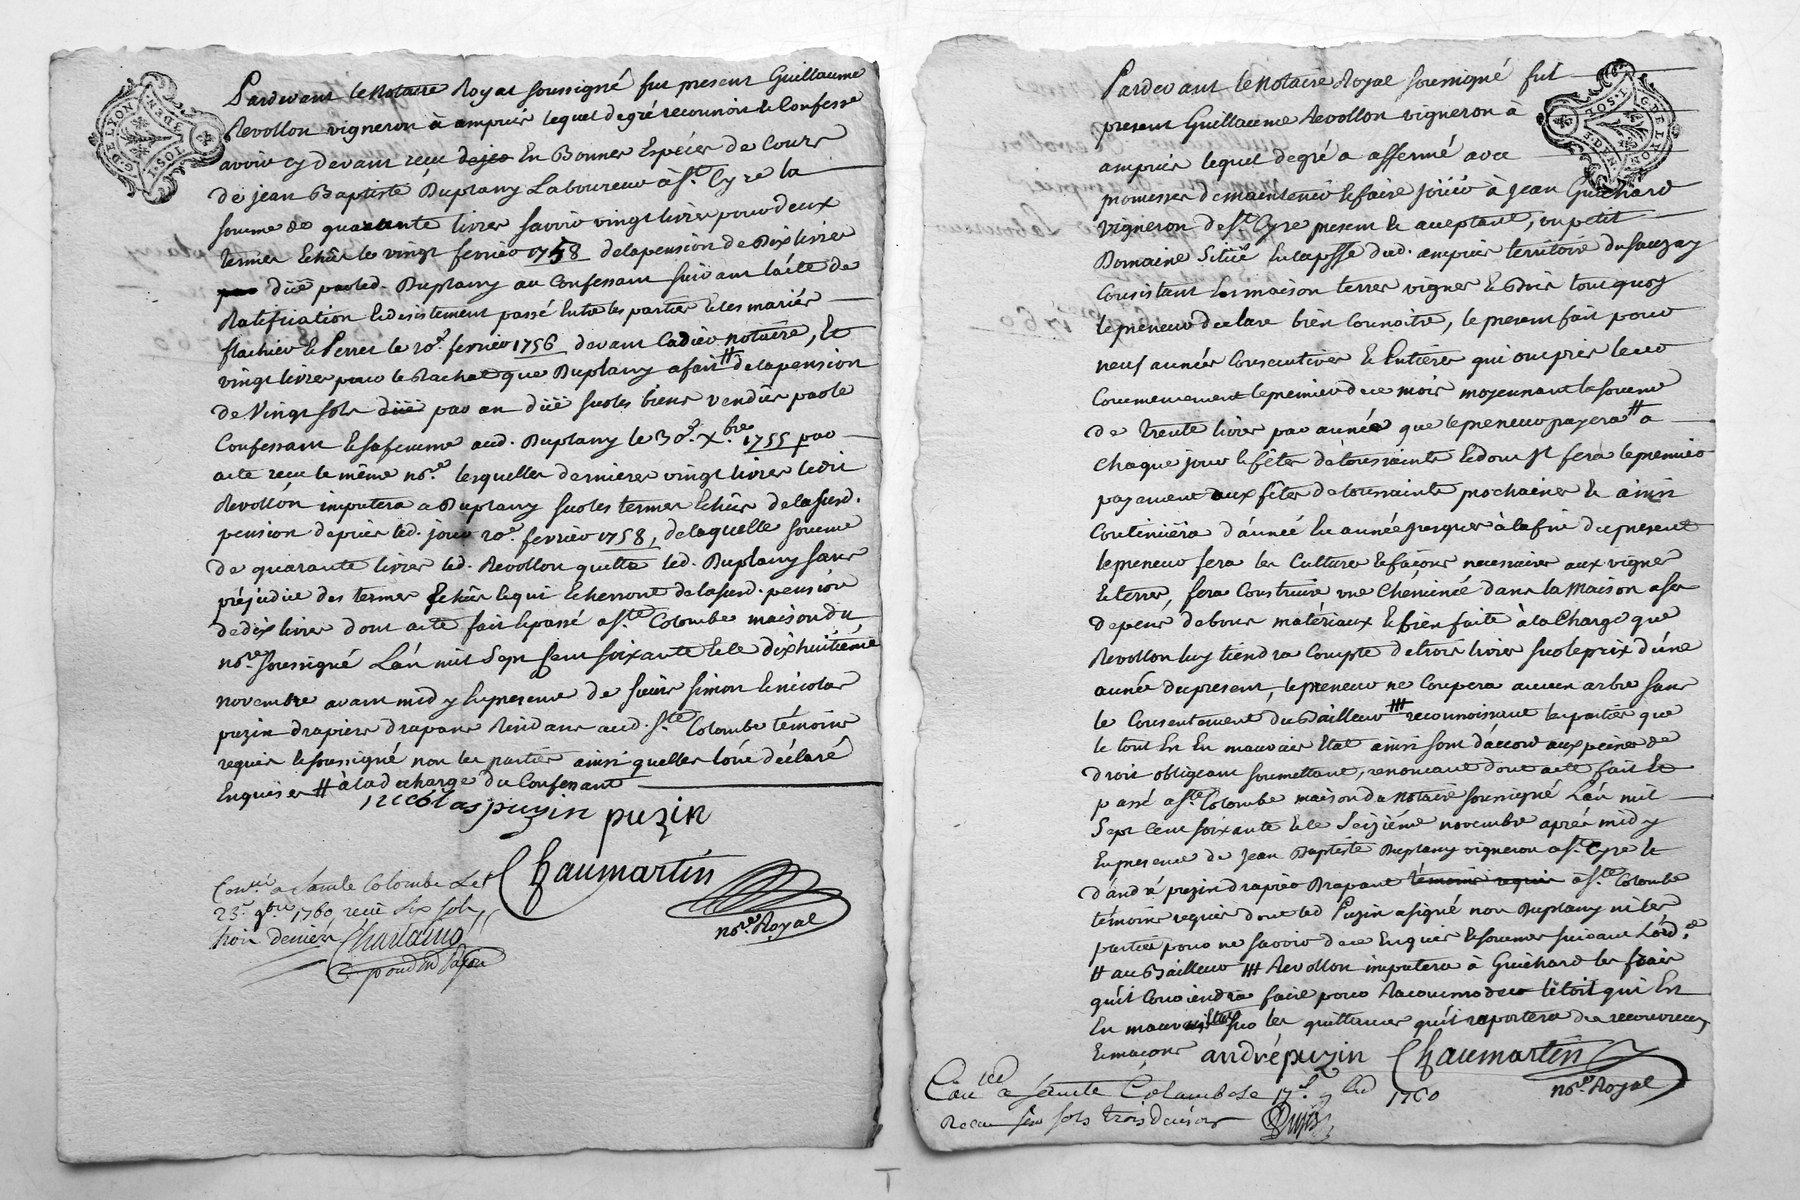 Pardevant le Notaire Royal soussigné fut present Guillaume
Revollon vigneron à ampuis lequel de gré reconnoit & Confesse
avoir cy devant receu En Bonnes Espéces de Cours
de jean Baptiste Duplany Laboureur à St. Cyre la
somme de quarante livres savoir vingt livres pour deux
termes Echûs le vingt fevrier 1758 de la pension de Dix livres
düe par led. Duplany au Confessant suivant l'acte de
Ratification & desistement passé Entre les parties & les mariés
flachier & Perret le 20e. fevrier 1756 devant Cadier notaire, Et
vingt livres pour le Rachat que Duplany a fait # de la pension
de Vingt sols düe par an düe sur les biens vendûs par le
Confessant & sa femme aud. Duplany le 30e. Xbre 1755 par
acte receu le même nore. lesquelles dernieres vingt livres ledit
Revollon imputera a Duplany sur les termes Echûs de la susd.
pension depuis led. jour 20e. fevrier 1758, de laquelle somme
de quarante livres led. Revollon quitte led. Duplany sans
préjudice des termes Echûs & qui Echerront de la susd. pension
de dix livres dont acte fait & passé a Ste. Colombe maison du
nore. soussigné L'an mil Sept Cent soixante & le dix huitieme
novembre avant midy En presence de sieurs simon & nicolas
puzin drapiers drapans Residans aud. Ste. Colombe témoins
requis & soussigné non les parties ainsi quelles l'ont déclaré
Enquises # à la decharge du Confessant
nicolas puzin puzin
Chaumartin
nore. Royal
Conllé a Sainte Colombe Le
23e. 9bre 1760 receu six sols
trois deniers
Pardevant le Notaire Royal soussigné fut
present Guillaume Revollon vigneron à
ampuis lequel de gré a affermé avec
promesses de maintenir & faire joüir à Jean Guichard
vigneron de St. Cyre present & acceptant, un petit
Domaine Sitüé En la psse dud. ampuis territoire du sauzay
Consistant En maison terres vignes & bois tout quoy
le preneur declare bien Connoitre, le present fait pour
neuf années Consecutives & Entieres qui ont pris leur
Commencement le premier de ce mois moyennant la somme
de trente livres par année que le preneur payera # a
chaque jour & fêtes de toussaints & dont il fera le premier
payement aux fêtes de toussaints prochaines & ainsi
Continüera d'année En année jusques à la fin du present
le preneur fera les Cultures & façons necessaires aux vignes
& terres, fera Construire une Chéminée dans la Maison a ses
depens de bons matériaux & bien faite à la Charge que
Revollon luy tiendra Compte de trois livres sur le prix d'une
année du present, le preneur ne Coupera aucun arbre sans
le Consentement du Bailleur ### reconnoissant les parties que
le tout Est En mauvais Etat ainsi sont d'accord aux peines de
droit obligeant soumettant, renonceant dont acte fait Et
passé a Ste. Colombe maison du Notaire soussigné L'an mil
Sept Cent soixante & le Seizième novembre après midy
En presence de Jean Baptiste Duplany vigneron a St. Cyre &
d'andré puzin drapier Drapant temoins requis à Ste. Colombe
témoins requis dont led Puzin a signé non Duplany ni les
parties pour ne savoir de ce Enquis & sommés suivant L'orde.
# au Bailleur ### Revollon imputera à Guichard les frais
qu'il Conviendra faire pour Racommoder le toit qui Est
En mauvais Etat sur les quittances qu'il raportera des recouvreurs
& maçons andré puzin Chaumartin
nore. Royal
Conllé a Sainte Colombe le 17e. 9bre 1760
Receu six sols trois deniers